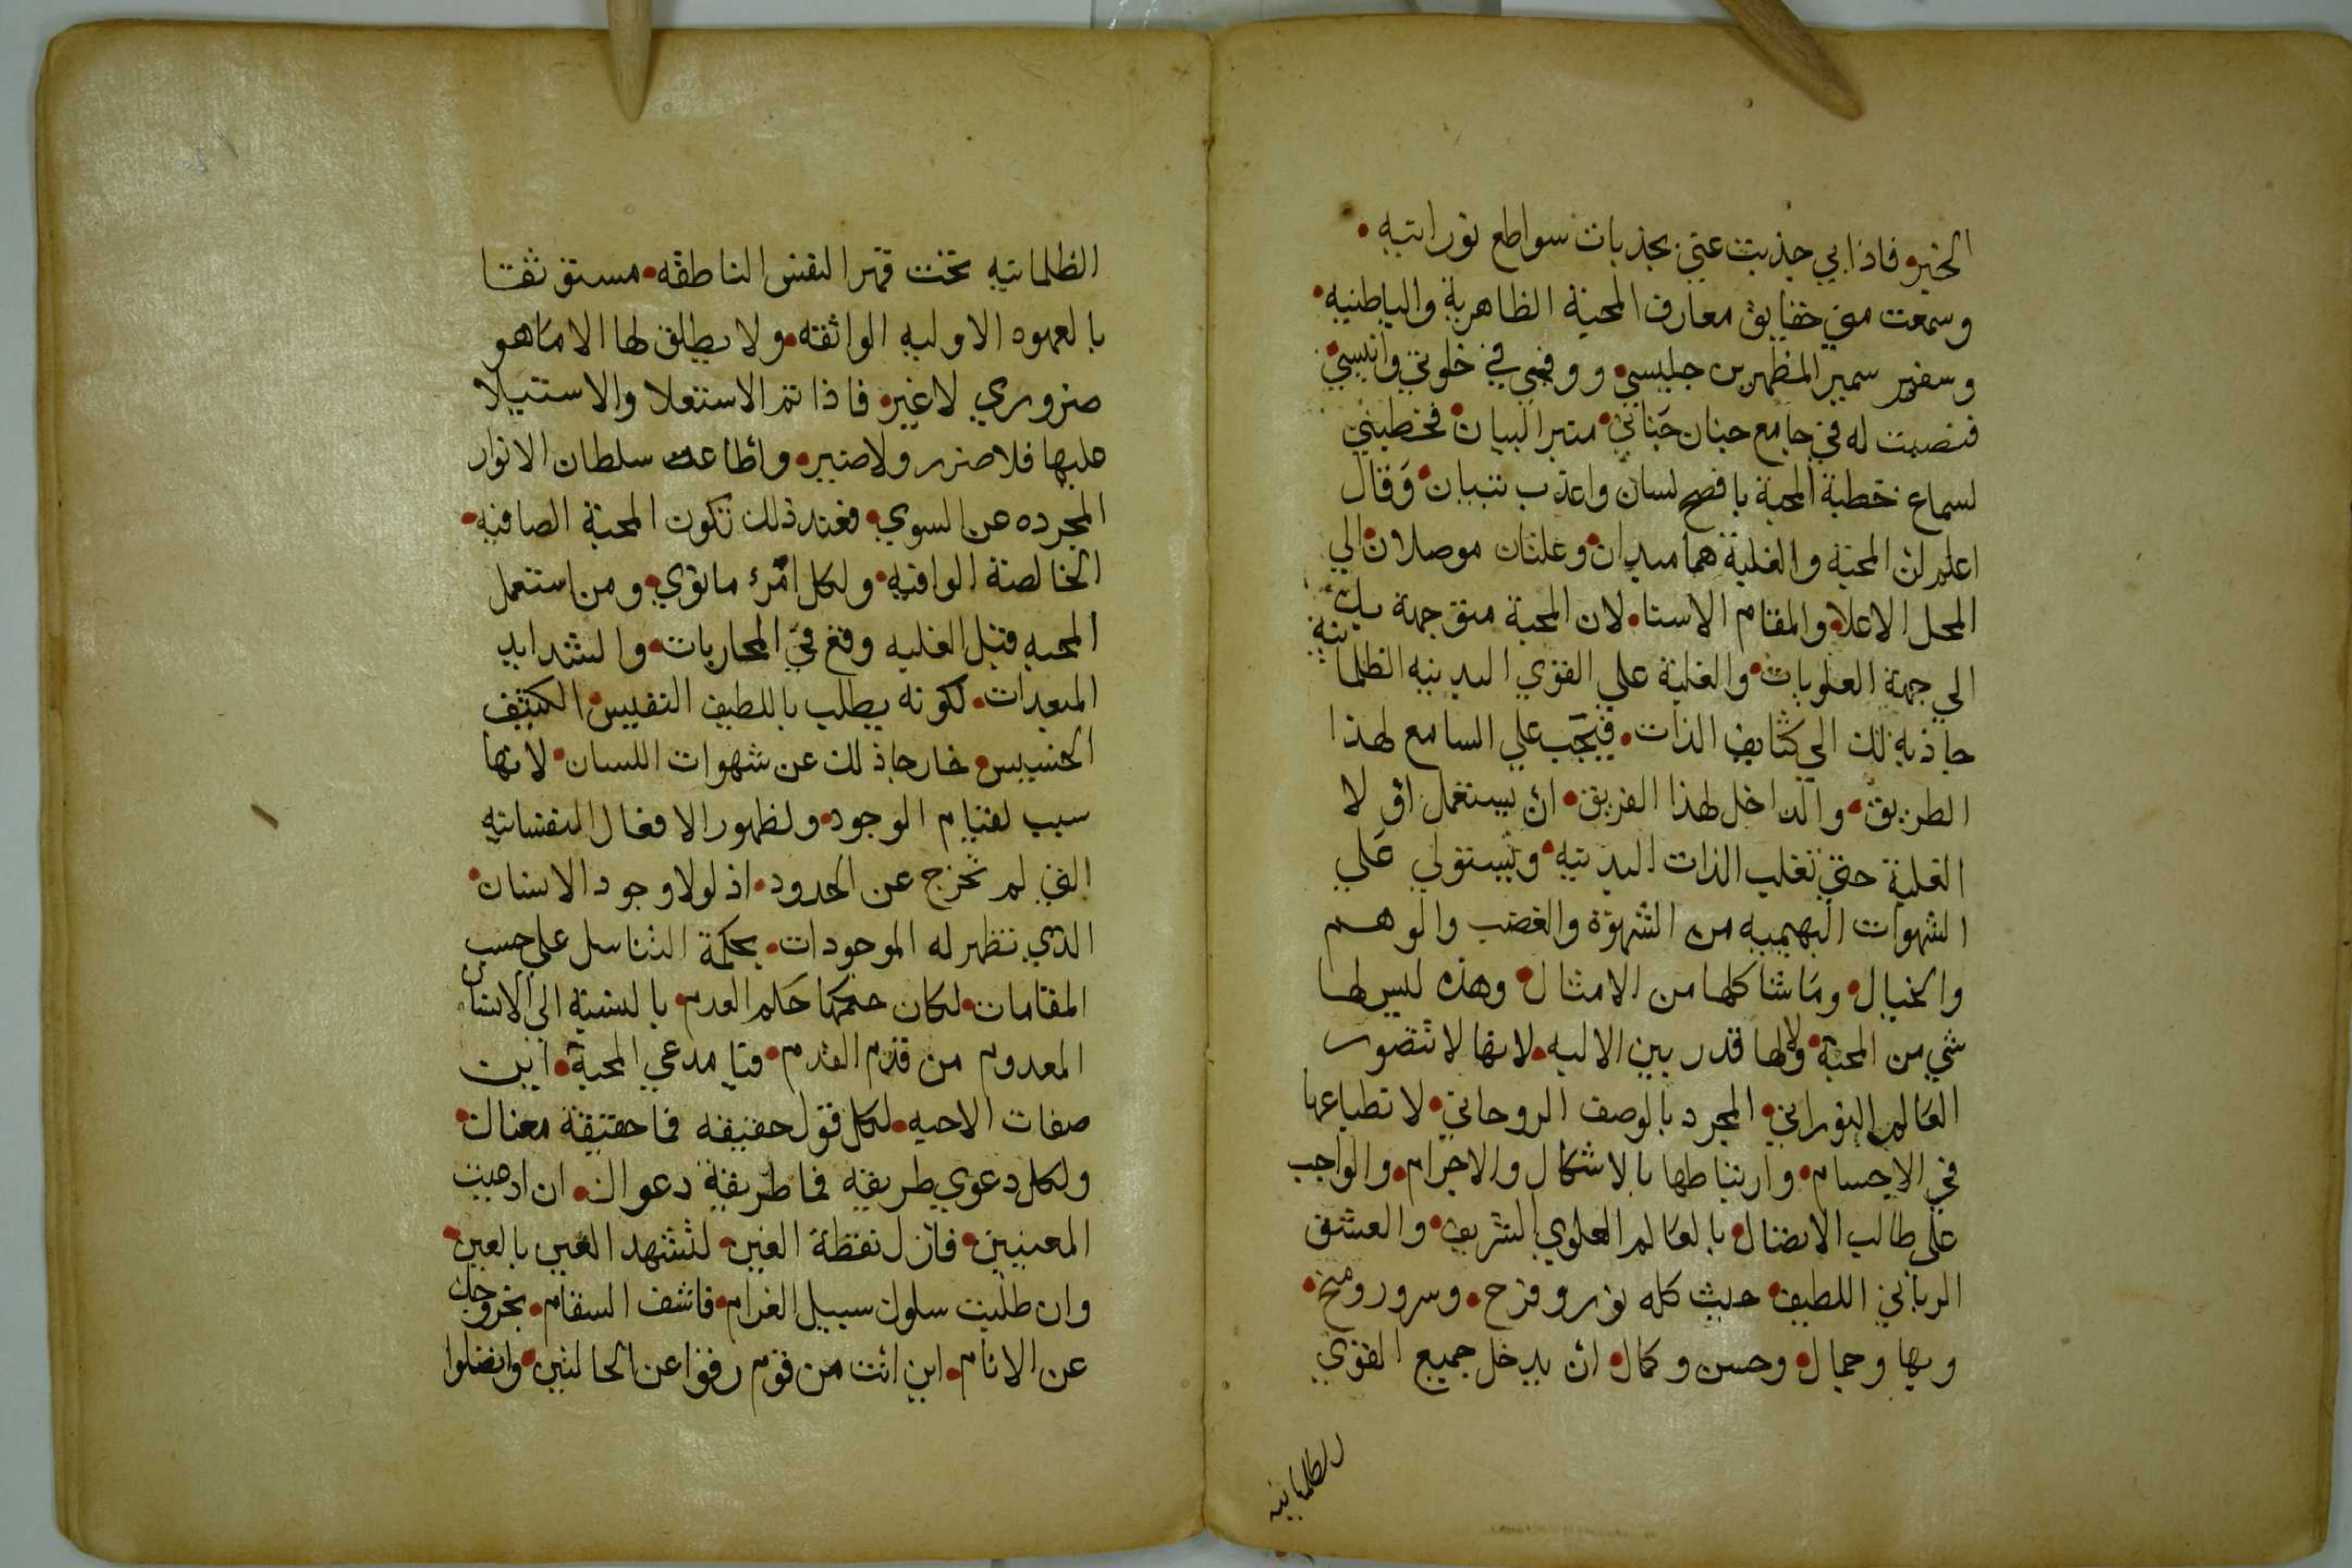 الخير• فاذا بي جذبت عني بجذبات سواطع نورانيه•
وسمعت مني حقايق معارف المحبة الظاهرية والباطنيه•
وسفير سمير المظهرين جليسي• ورفيقي في خلوتي وانيسي•
فنصبت له في جامع جنان جناني• منبر البيان• فخطبني
لسماع خطبة المحبة بافصح لسان واعذب تبيان• وقال
اعلم ان المحبة والغلبة هما مبدان• وعلتان موصلان الي
المحل الاعلا• والمقام الاسنا• لان المحبة متوجهة بك
الي جهة العلويات• والغلبة علي القوي البدنيه الظلمانية
جاذبة لك الي كثايف الذات• فيجب علي السامع لهذا
الطريق• والداخل لهذا الفريق• ان يستعمل اولا
الغلبة حتي تغلب الذات البدنيه• ويستولي علي
الشهوات البهيميه من الشهوة والغضب والوهم
والخيال• وما شاكلها من الامثال• وهذه ليس لها
شي من المحبة• ولا لها قدر بين الاليه• لانها لا تتصور
العالم النوراني• المجرد بالوصف الروحاني• لانطباعها
في الاجسام• وارتباطها بالاشكال والاجرام• والواجب
علي طالب الاتصال• بالعالم العلوي الشريف• والعشق
الرباني اللطيف• حيث كله نور وفرح• وسرور ومنح•
وبها وجمال• وحسن وكمال• ان يدخل جميع القوي
الظلمانيه
الظلمانيه تحت قهر النفس الناطقه• مستوثقا
بالعهود الاوليه الواثقه• ولا يطلق لها الا ما هو
ضروري لا غير• فاذا تم الاستعلا والاستيلا
عليها فلا ضرر ولا ضير• واطاعت سلطان الانوار
المجرده عن السوي• فعند ذلك تكون المحبة الصافيه•
الخالصة الوافيه• ولكل امرء ما نوي• ومن استعمل
المحبه قبل الغلبه وقع في المحاربات• والشدايد
المبعدات• لكونه يطلب باللطيف النفيس• الكثيف
الخسيس• خارجا ذلك عن شهوات اللسان• لانها
سبب لقيام الوجود• ولظهور الافعال النفسانيه
التي لم تخرج عن الحدود• اذ لولا وجود الانسان•
الذي تظهر له الموجودات• بحكمة التناسل علي حسب
المقامات• لكان حكمها حكم العدم• بالنسبة الي الانسان
المعدوم من قدم القدم• فيا مدعي المحبة• اين
صفات الاحبه• لكل قول حقيقه فما حقيقة معناك•
ولكل دعوي طريقه فما طريقة دعواك• ان ادعيت
المعنيين• فازل نقطة الغين• لتشهد العين بالعين•
وان طلبت سلوك سبيل الغرام• فاشف السقام• بخروجك
عن الانام• اين انت من قوم رقوا عن الحالتين• واتصلوا